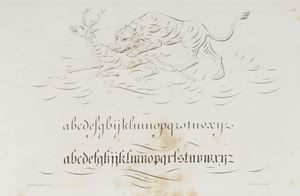 abcdefghijklmnopqrstuvwxyz
abcdefghijklmnopqrsstuvwxyz